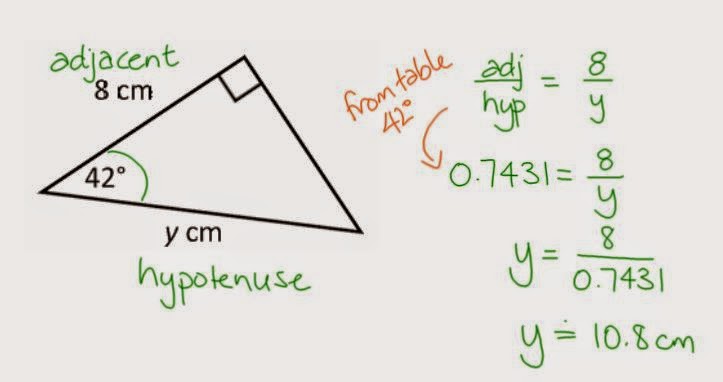 adjacent
8 cm
42°
y cm
hypotenuse
from table
42°
adj/hyp = 8/y
0.7431 = 8/y
y = 8/0.7431
y ≐ 10.8 cm